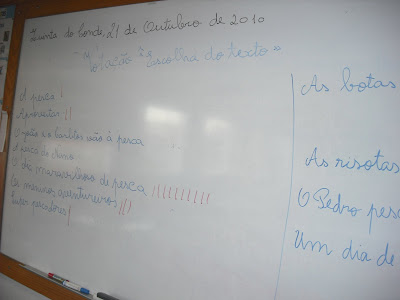 Quinta do conde, 21 de Outubro de 2010
"Votação da escolha do texto"
A pesca |
Aproveitar ||
O gato e o Carlitos vão à pesca
A pesca do Nuno
O dia maravilhoso de pesca ||||||||||
Os meninos aventureiros |||
Super pescadores |
As botas
As risotas
O Pedro pesc
Um dia de